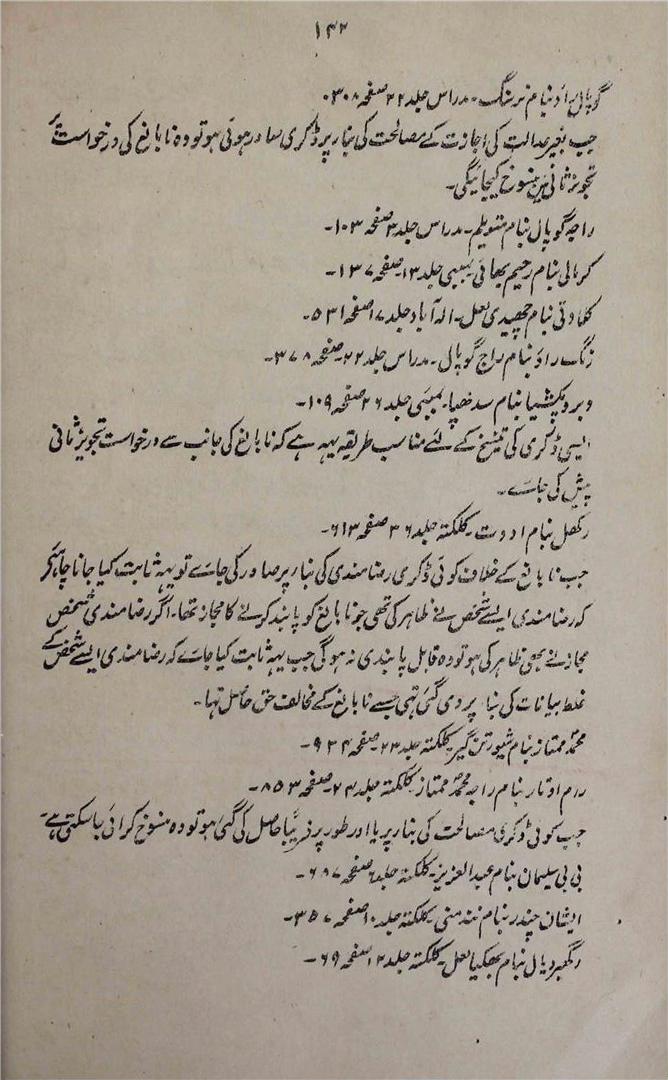 ۱۴۲
گوپال راؤ بنام نرسنگ۔ مدراس جلد ۲۲ صفحہ ۳۰۸۔
جب بغیر عدالت کی اجازت کے مصالحت کی بنا پر ڈگری صادر ہوئی ہو تو وہ نابالغ کی درخواست پر
تجویز ثانی میں منسوخ کیجائیگی۔
راجہ گوپال بنام متویلم۔ مدراس جلد ۳ صفحہ ۱۰۳۔
کرمالی بنام رحیم بھائی بمبیی جلد ۱۳ صفحہ ۱۳۷۔
کلاوتی بنام چھیدی لعل۔ الہ آباد جلد ۱۷ صفحہ ۵۳۱۔
رنگ راؤ بنام راج گوپالی۔ مدراس جلد ۲۲ صفحہ ۳۷۸۔
ویروپکشیا بنام سدھپا۔ بمبئی جلد ۲۶ صفحہ ۱۰۹۔
ایسی ڈگری کی تنسیخ کے لئے مناسب طریقہ یہہ ہے کہ نابالغ کی جانب سے درخواست تجویز ثانی
پیش کی جاے۔
رکھل بنام ادوت۔ کلکتہ جلد ۳۶ صفحہ ۶۱۳۔
جب نابالغ کے خلاف کوئی ڈگری رضامندی کی بنا پر صادر کی جاے تو یہہ ثابت کیا جانا چاہئیگر
کہ رضامندی ایسے شخص نے ظاہر کی تھی جو نابالغ کو پابند کرنے کا مجاز تھا۔ اگر رضامندی شخص
مجاز نے بھی ظاہر کی ہو تو وہ قابل پابندی نہ ہوگی جب یہہ ثابت کیا جاے کہ رضامندی ایسے شخص کے
غلط بیانات کی بنا پر دی گئی تہی جسے نابالغ کے مخالف حق حاصل تہا۔
محمد ممتاز بنام شیورتن گیر کلکتہ جلد ۲۳ صفحہ ۹۳۴۔
رام اوتار بنام راجہ محمد ممتاز کلکتہ جلد ۲۴ صفحہ ۸۵۳۔
جب کوئی ڈگری مصالحت کی بنا پر یا اور طور پر فریبًا حاصل کی گئی ہو تو وہ منسوخ کرائی جا سکتی ہے۔
بی بی سلیمان بنام عبدالعزیز۔ کلکتہ جلد ۶ صفحہ ۶۸۷۔
ایشان چندر بنام نندمنی۔ کلکتہ جلد ۱۰ صفحہ ۳۵۷۔
رگھبردیال بنام بھکیا لعل۔ کلکتہ جلد ۱۲ صفحہ ۶۹۔